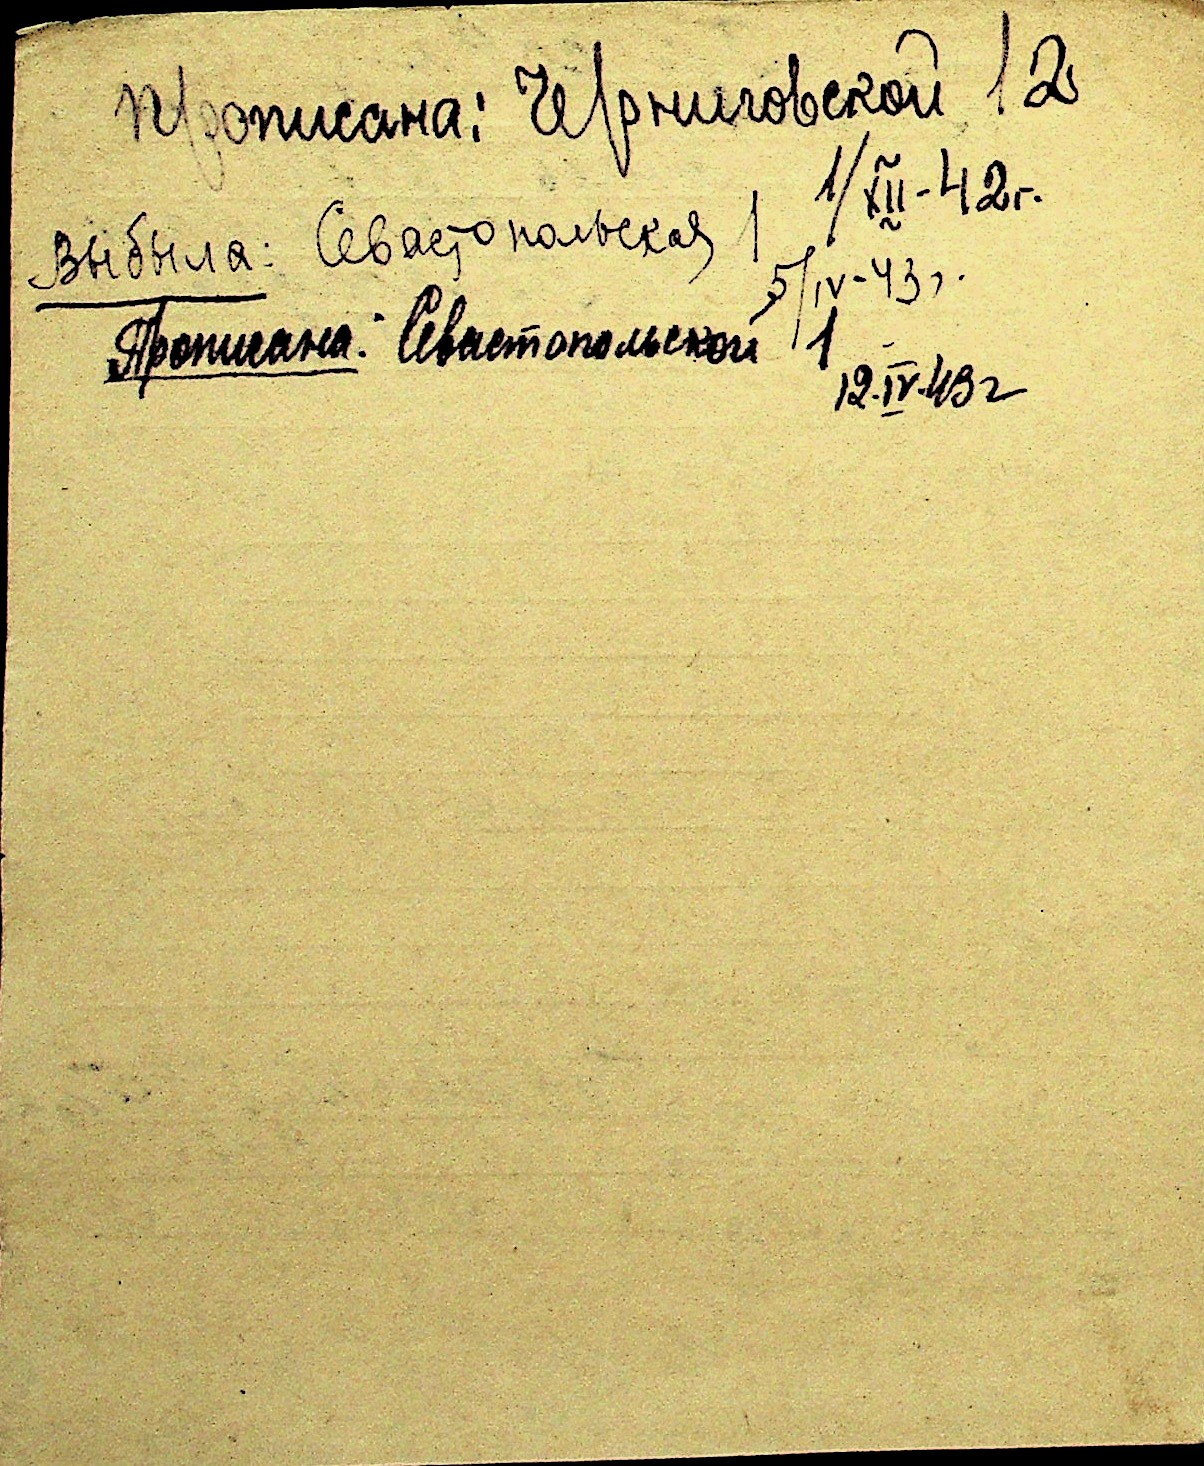 Прописана: Черниговской 12
1/XII-42г.
Выбыла: Севастопольская 1
5/IV-43г.
Прописана: Севастопольской 1
12.IV.43г